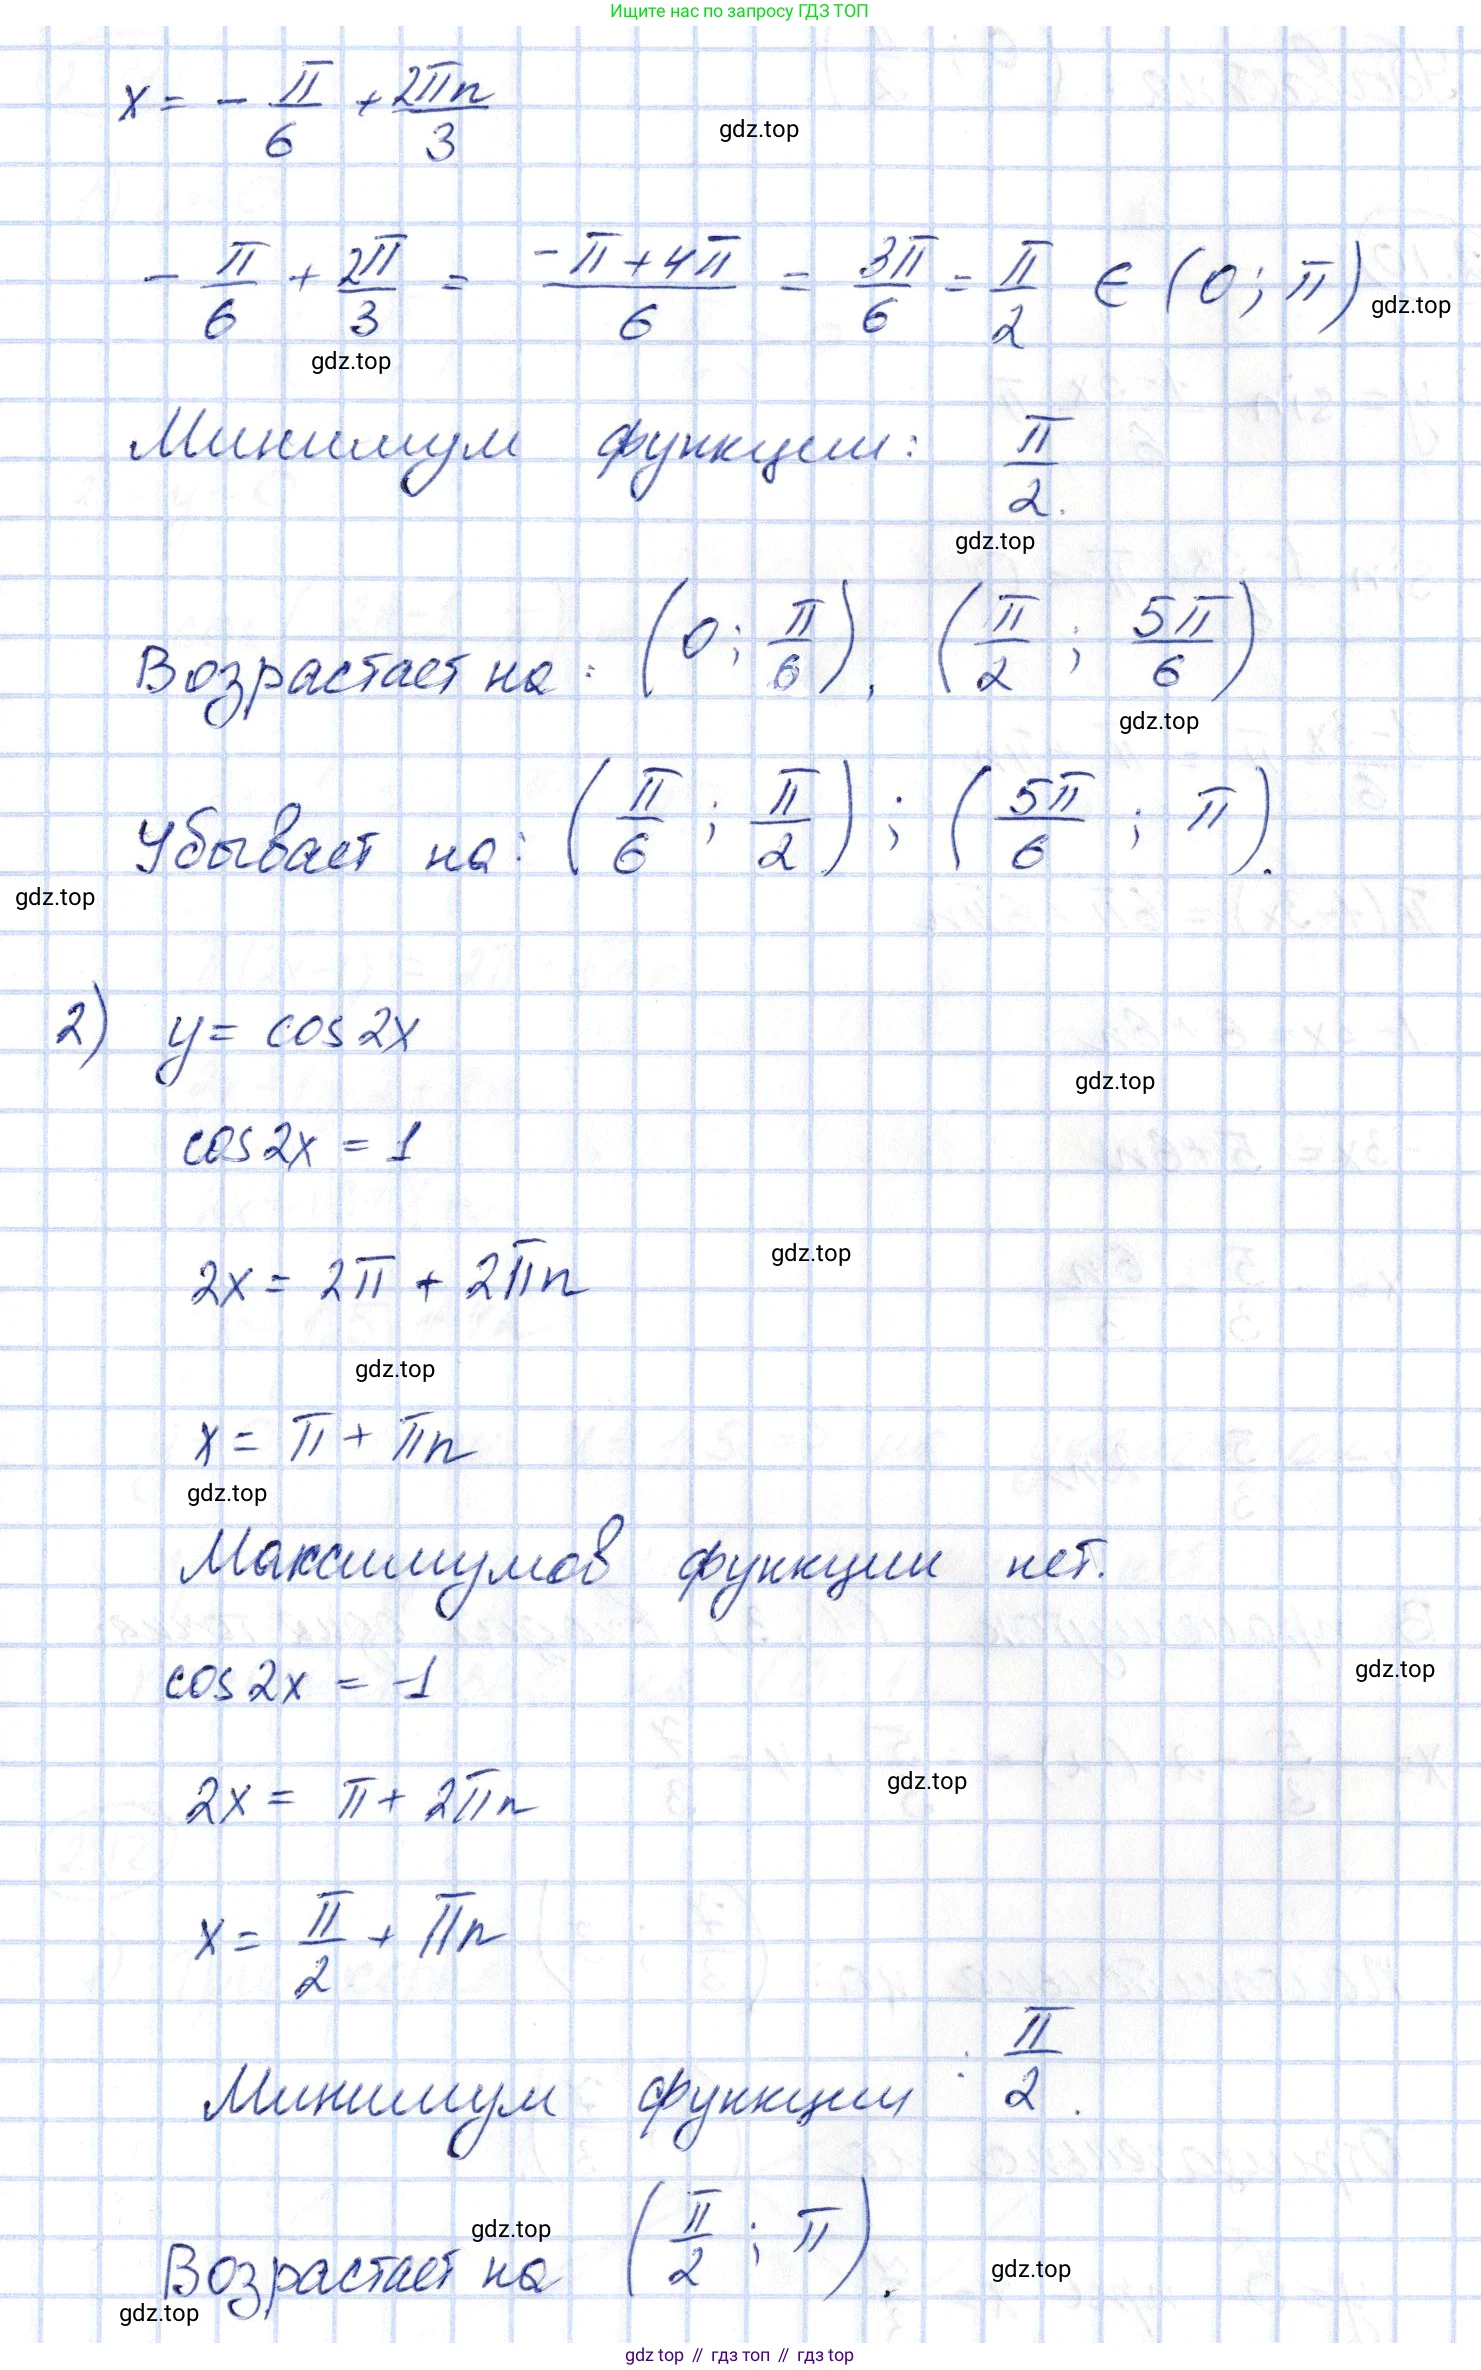 Ищите нас по запросу ГДЗ ТОП
x = - π/6 + 2πn/3
gdz.top
- π/6 + 2π/3 = (-π+4π)/6 = 3π/6 = π/2 ∈ (0; π)
gdz.top
gdz.top
Минимум функции: π/2.
gdz.top
Возрастает на: (0; π/6), (π/2; 5π/6)
gdz.top
Убывает на: (π/6; π/2); (5π/6; π).
gdz.top
2) y = cos2x
gdz.top
cos2x = 1
2x = 2π + 2πn
gdz.top
gdz.top
x = π + πn
gdz.top
Максимумов функции нет.
cos2x = -1
gdz.top
2x = π + 2πn
gdz.top
x = π/2 + πn
Минимум функции: π/2.
Возрастает на (π/2; π).
gdz.top
gdz.top
gdz.top
gdz top // гдз топ // гdz top